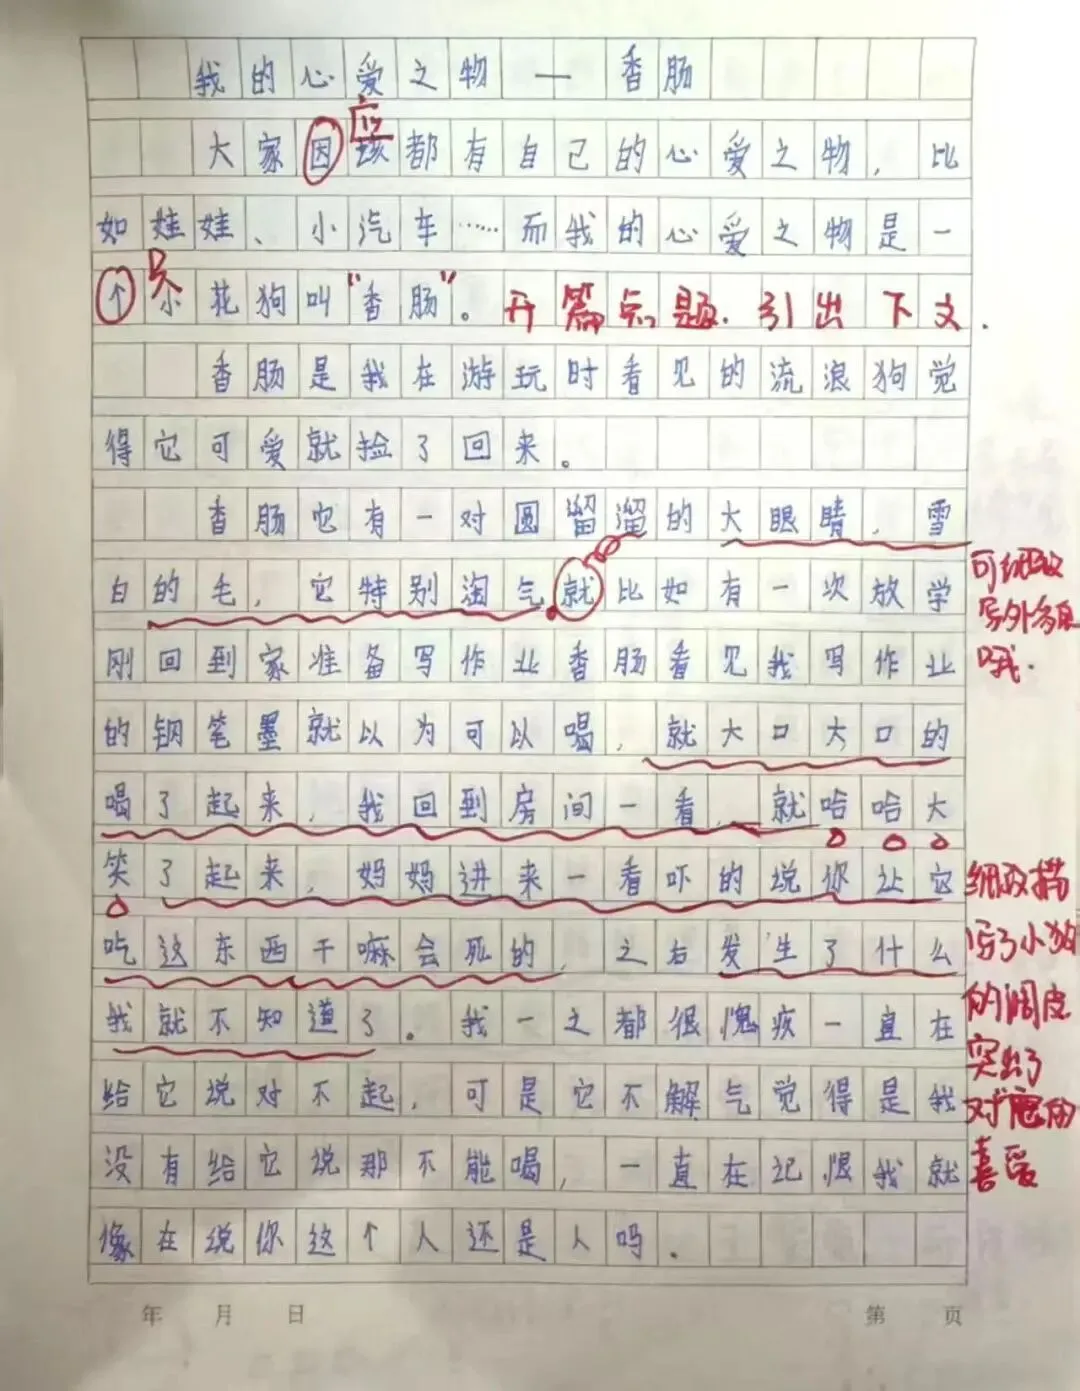 我的心爱之物一香肠
应
大家因该都有自己的心爱之物，比
如娃娃、小汽车……而我的心爱之物是一
个小花狗叫“香肠”。开篇点题.引出下文.
只
香肠是我在游玩时看见的流浪狗觉
得它可爱就捡了回来。
香肠它有一对圆溜溜的大眼睛，雪
白的毛，它特别淘气就比如有一次放学
可细致
写外貌
哦.
刚回到家准备写作业香肠看见我写作业
的钢笔墨就以为可以喝，就大口大口的
喝了起来，我回到房间一看，就哈哈大
笑了起来，妈妈进来一看吓的说你让它
吃这东西干嘛会死的，之右发生了什么
我就不知道了。我一之都很愧疚一直在
给它说对不起，可是它不解气觉得是我
没有给它说那不能喝，一直在记恨我就
像在说你这个人还是人吗.
细致描
写了小狗
的调皮
突出了
对它的
喜爱
年 月 日 第 页